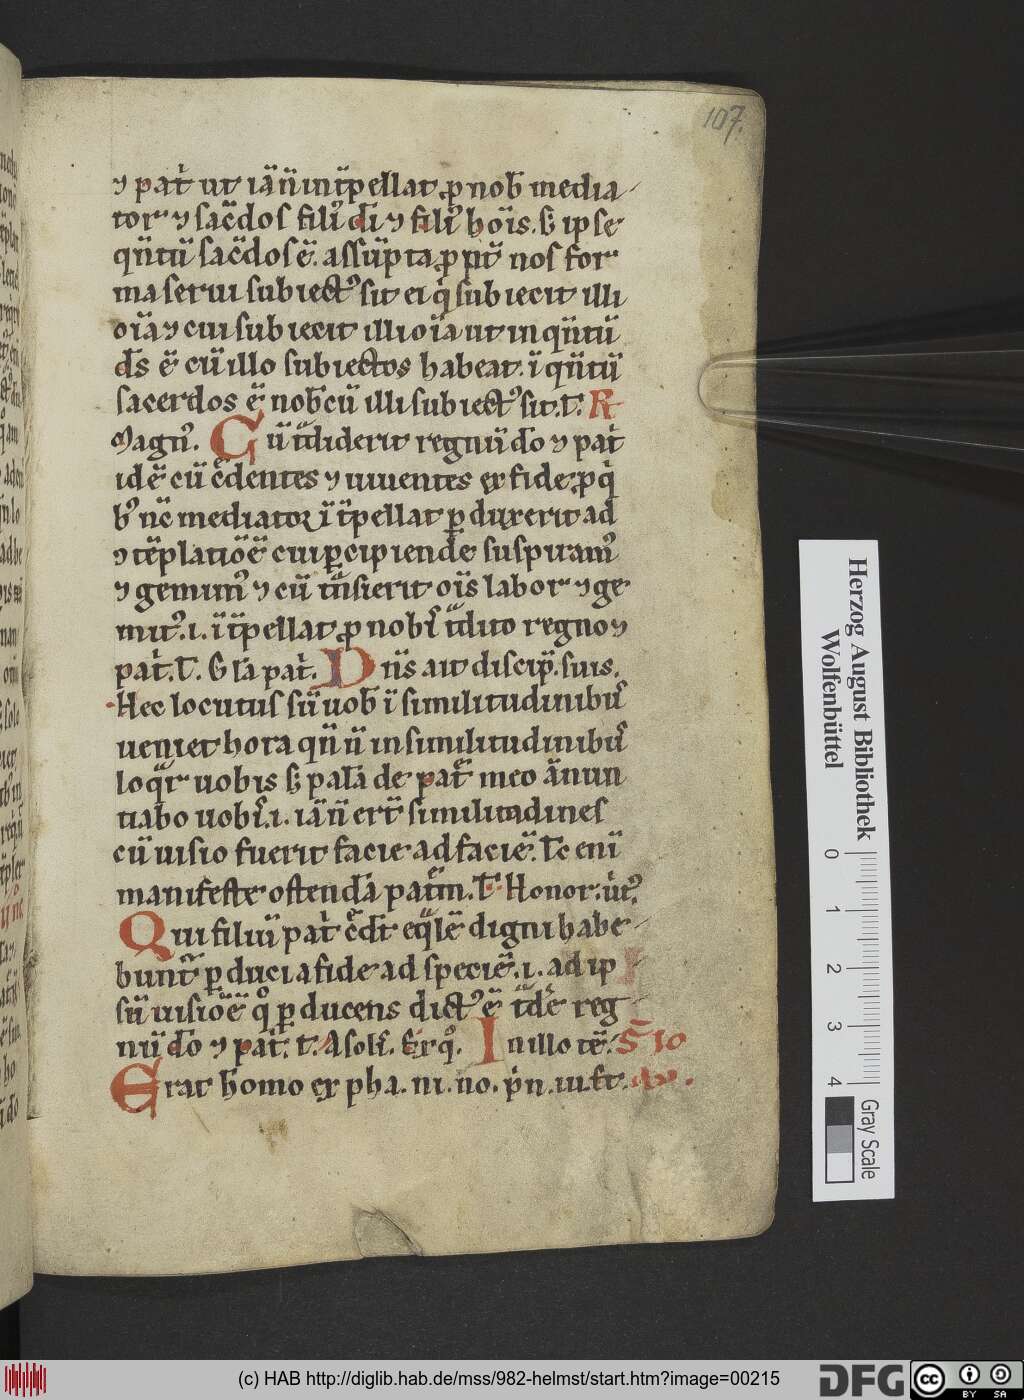 107.
⁊ pat᷒ ut iā n̄ int̄pellat ꝓ nob̄ media
tor ⁊ sac̄dos filiꝰ dī ⁊ filiꝰ hoīs. s̄ ipse
qn̄tū sac̄dos ē. assūpta ꝓpt̄ nos for
ma serui subiectꝰ sit ei qͥ subiecit illi
oīa ⁊ cui subiecit illi oīa ut in qn̄tū
ds̄ ē cū illo subiectos habeat. ī qn̄tū
sacerdos ē nob̄cū illi subiectꝰ sit. T̄. R
Magnꝰ. Cū tͣdiderit regnū do ⁊ pat̓
id ē cū c̄dentes ⁊ uiuentes ex fide. ꝓ qͥ
bꝰ nc̄ mediator īt̄pellat ꝑduxerit ad
ꝯtēplatiōē cui ꝑcipiende suspiramꝰ
⁊ gemimꝰ ⁊ cū tͣnsierit oīs labor ⁊ ge
mitꝰ. i. īt̄pellat ꝓ nobͥ tͣdito regno ⁊
pat̓. T̄. Gl̄a pat̓. Dn̄s ait discip̄. suis.
Hec locutus sū uob̄ ī similitudinibꝰ
ueniet hora qn̄ n̄ in similitudinibꝰ
loqͣr uobis s̄ palā de patͤ meo ānun
tiabo uobͥ. i. iā n̄ er̄t similitudines
cū uisio fuerit facie ad faciē. Tc̄ eni
manifeste ostendā patͤm. T̄. Honor. uͥt.
Qui filiū pat̓ c̄dt̄ eqͣlē digni habe
bunt᷒ ꝑduci a fide ad speciē. i. ad ip
sū uisiōē qͦ ꝑducens dictꝰ ē tͣdͤe reg
nū do ⁊ pat̓. T̄. A soliͥ. Ex qͦ. In illo tē. S. Io
Erat homo ex pha. ni. no. pͥn. iu. ꝛc̄. 
Herzog August Bibliothek
Wolfenbüttel
0
1
2
3
4
Gray Scale
(c) HAB http://diglib.hab.de/mss/982-helmst/start.htm?image=00215
DFG
cc
BY SA